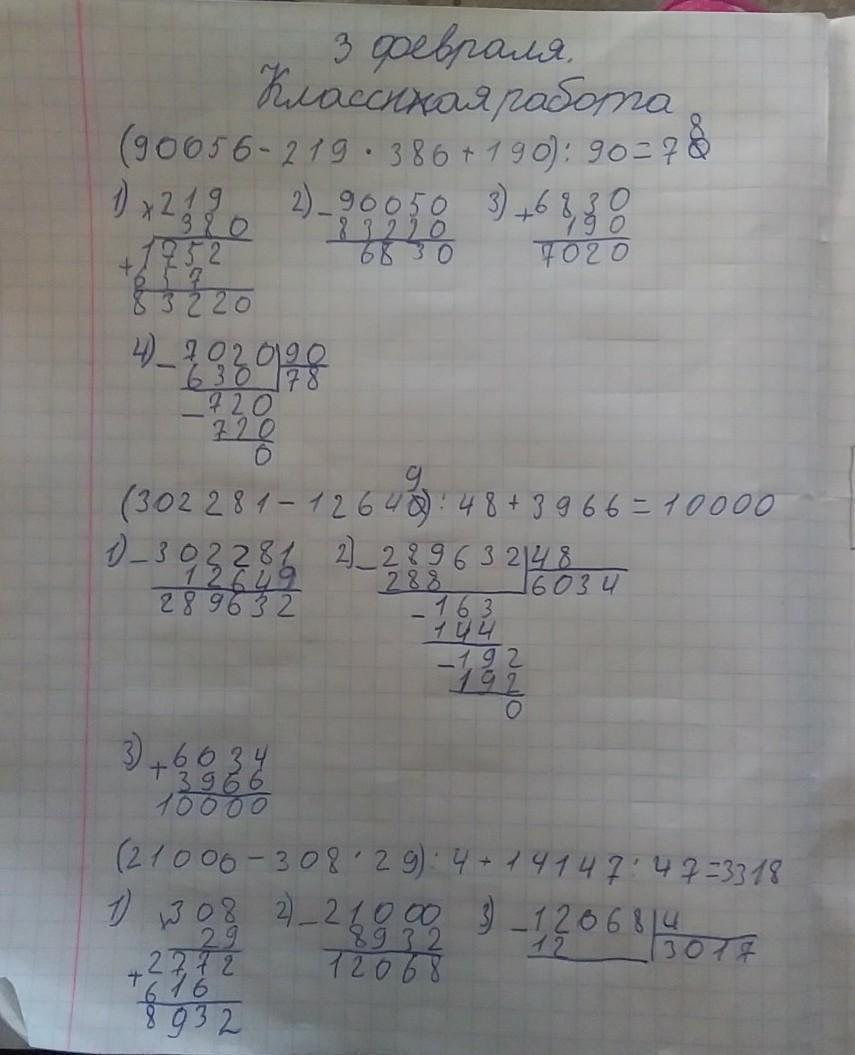 3 февраля.
Классная работа
(90050 - 219 · 380 + 190) : 90 = 78
1) × 219 2) - 90050 3) + 6830
380 83220 190
+ 1752 6830 7020
657
83220
4) - 7020 90
630 78
- 720
720
0
(302281 - 12649) : 48 + 3966 = 10000
1) - 302281 2) - 289632 48
12649 288 6034
289632 - 163
144
- 192
192
0
3) + 6034
3966
10000
(21000 - 308 · 29) : 4 + 14147 : 47 = 3318
1) × 308 2) - 21000 3) - 12068 4
29 8932 12 3017
+ 2772 12068
616
8932